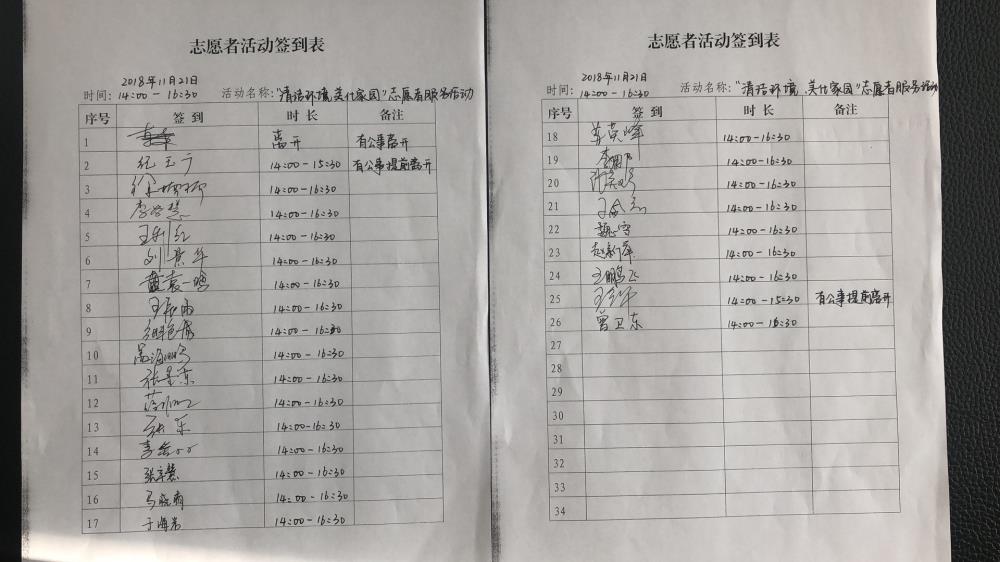 志愿者活动签到表
2018年11月21日
时间: 14:00-16:30 活动名称: "清洁环境,美化家园"志愿者服务活动
序号 签到 时长 备注
1 离开 有公事离开
2 纪玉宁 14:00-15:30 有公事提前离开
3 14:00-16:30
4 14:00-16:30
5 14:00-16:30
6 刘景华 14:00-16:30
7 14:00-16:30
8 14:00-16:30
9 14:00-16:30
10 14:00-16:30
11 14:00-16:30
12 14:00-16:30
13 张乐 14:00-16:30
14 14:00-16:30
15 14:00-16:30
16 马晓雨 14:00-16:30
17 14:00-16:30
志愿者活动签到表
2018年11月21日
时间: 14:00-16:30 活动名称: "清洁环境,美化家园"志愿者服务活动
序号 签到 时长 备注
18 14:00-16:30
19 14:00-16:30
20 14:00-16:30
21 14:00-16:30
22 魏守 14:00-16:30
23 14:00-16:30
24 王鹏飞 14:00-16:30
25 14:00-15:30 有公事提前离开
26 曾卫东 14:00-16:30
27
28
29
30
31
32
33
34